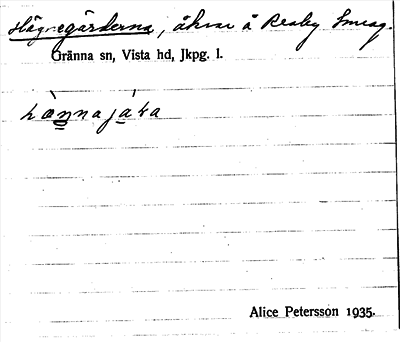 Hägnegärderna, åkrar å Reaby Smeag.
Gränna sn, Vista hd, Jkpg. l.
hæ̀nnajáka
Alice Petersson 1935.